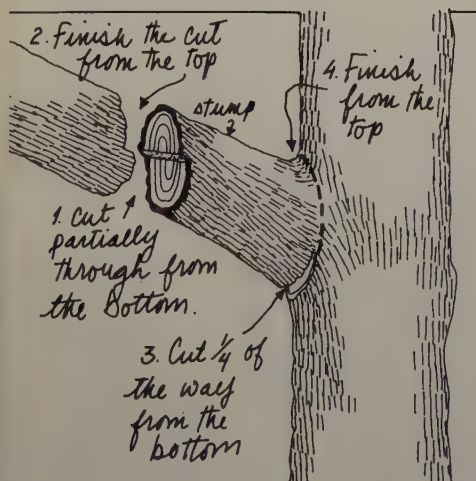 2. Finish the cut
from the top
stump
4. Finish
from the
top
1. Cut
partially
through from
the bottom.
3. Cut 1/4 of
the way
from the
bottom